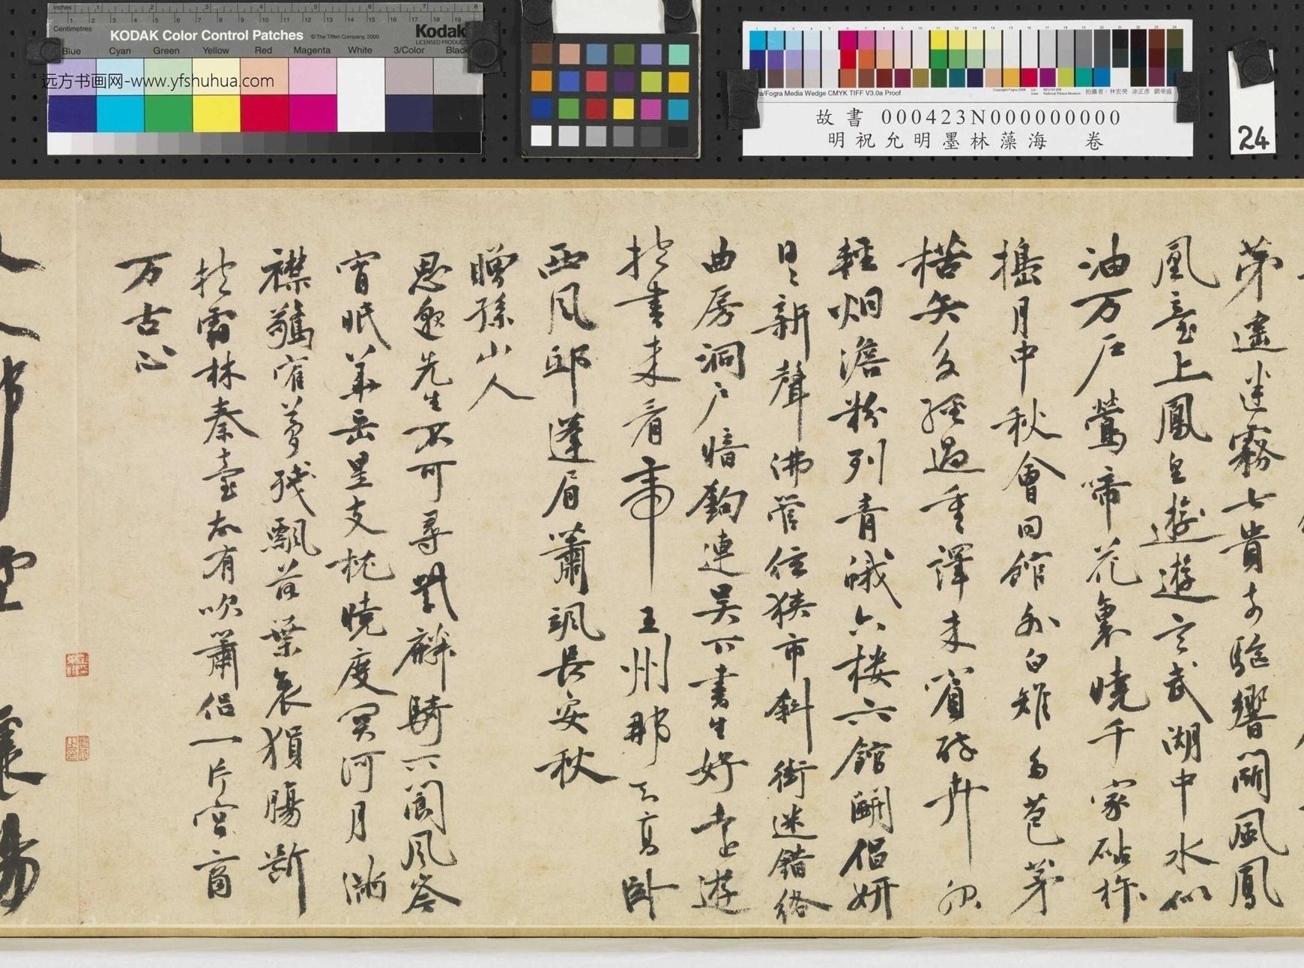 inches
Centimetres
KODAK Color Control Patches
© The Tiffen Company, 2000
Kodak
LICENSED PRODUCT
Blue Cyan Green Yellow Red Magenta White 3/Color Black
远方书画网-www.yfshuhua.com
Fogra Media Wedge CMYK TIFF V3.0a Proof
故書 000423N000000000
明祝允明墨林藻海 卷
24
第遥迷霧七貴 驅響閙風鳳
凰臺上鳳皇遊遊玄武湖中水似
油万户鶯啼花裏曉千家砧杵
擣月中秋會同館外白雉 苞茅
楛矢多經過重譯未賓 卉
輕烟澹粉列青蛾六楼六館鬭倡妍
日日新聲沸管 狭市斜街迷錯絡
曲房洞户暗鉤連吴下書生好 遊
抱書来看帝王州那 高卧
西風邸蓬眉蕭颯長安秋
贈孫山人
思邈先生不可尋 麟騎 閬風岑
宵眠華岳星支枕曉度冥河月満
襟鶴 夢残飄 葉哀猿腸断
霜林秦臺 有吹蕭侣一片宫商
万古心